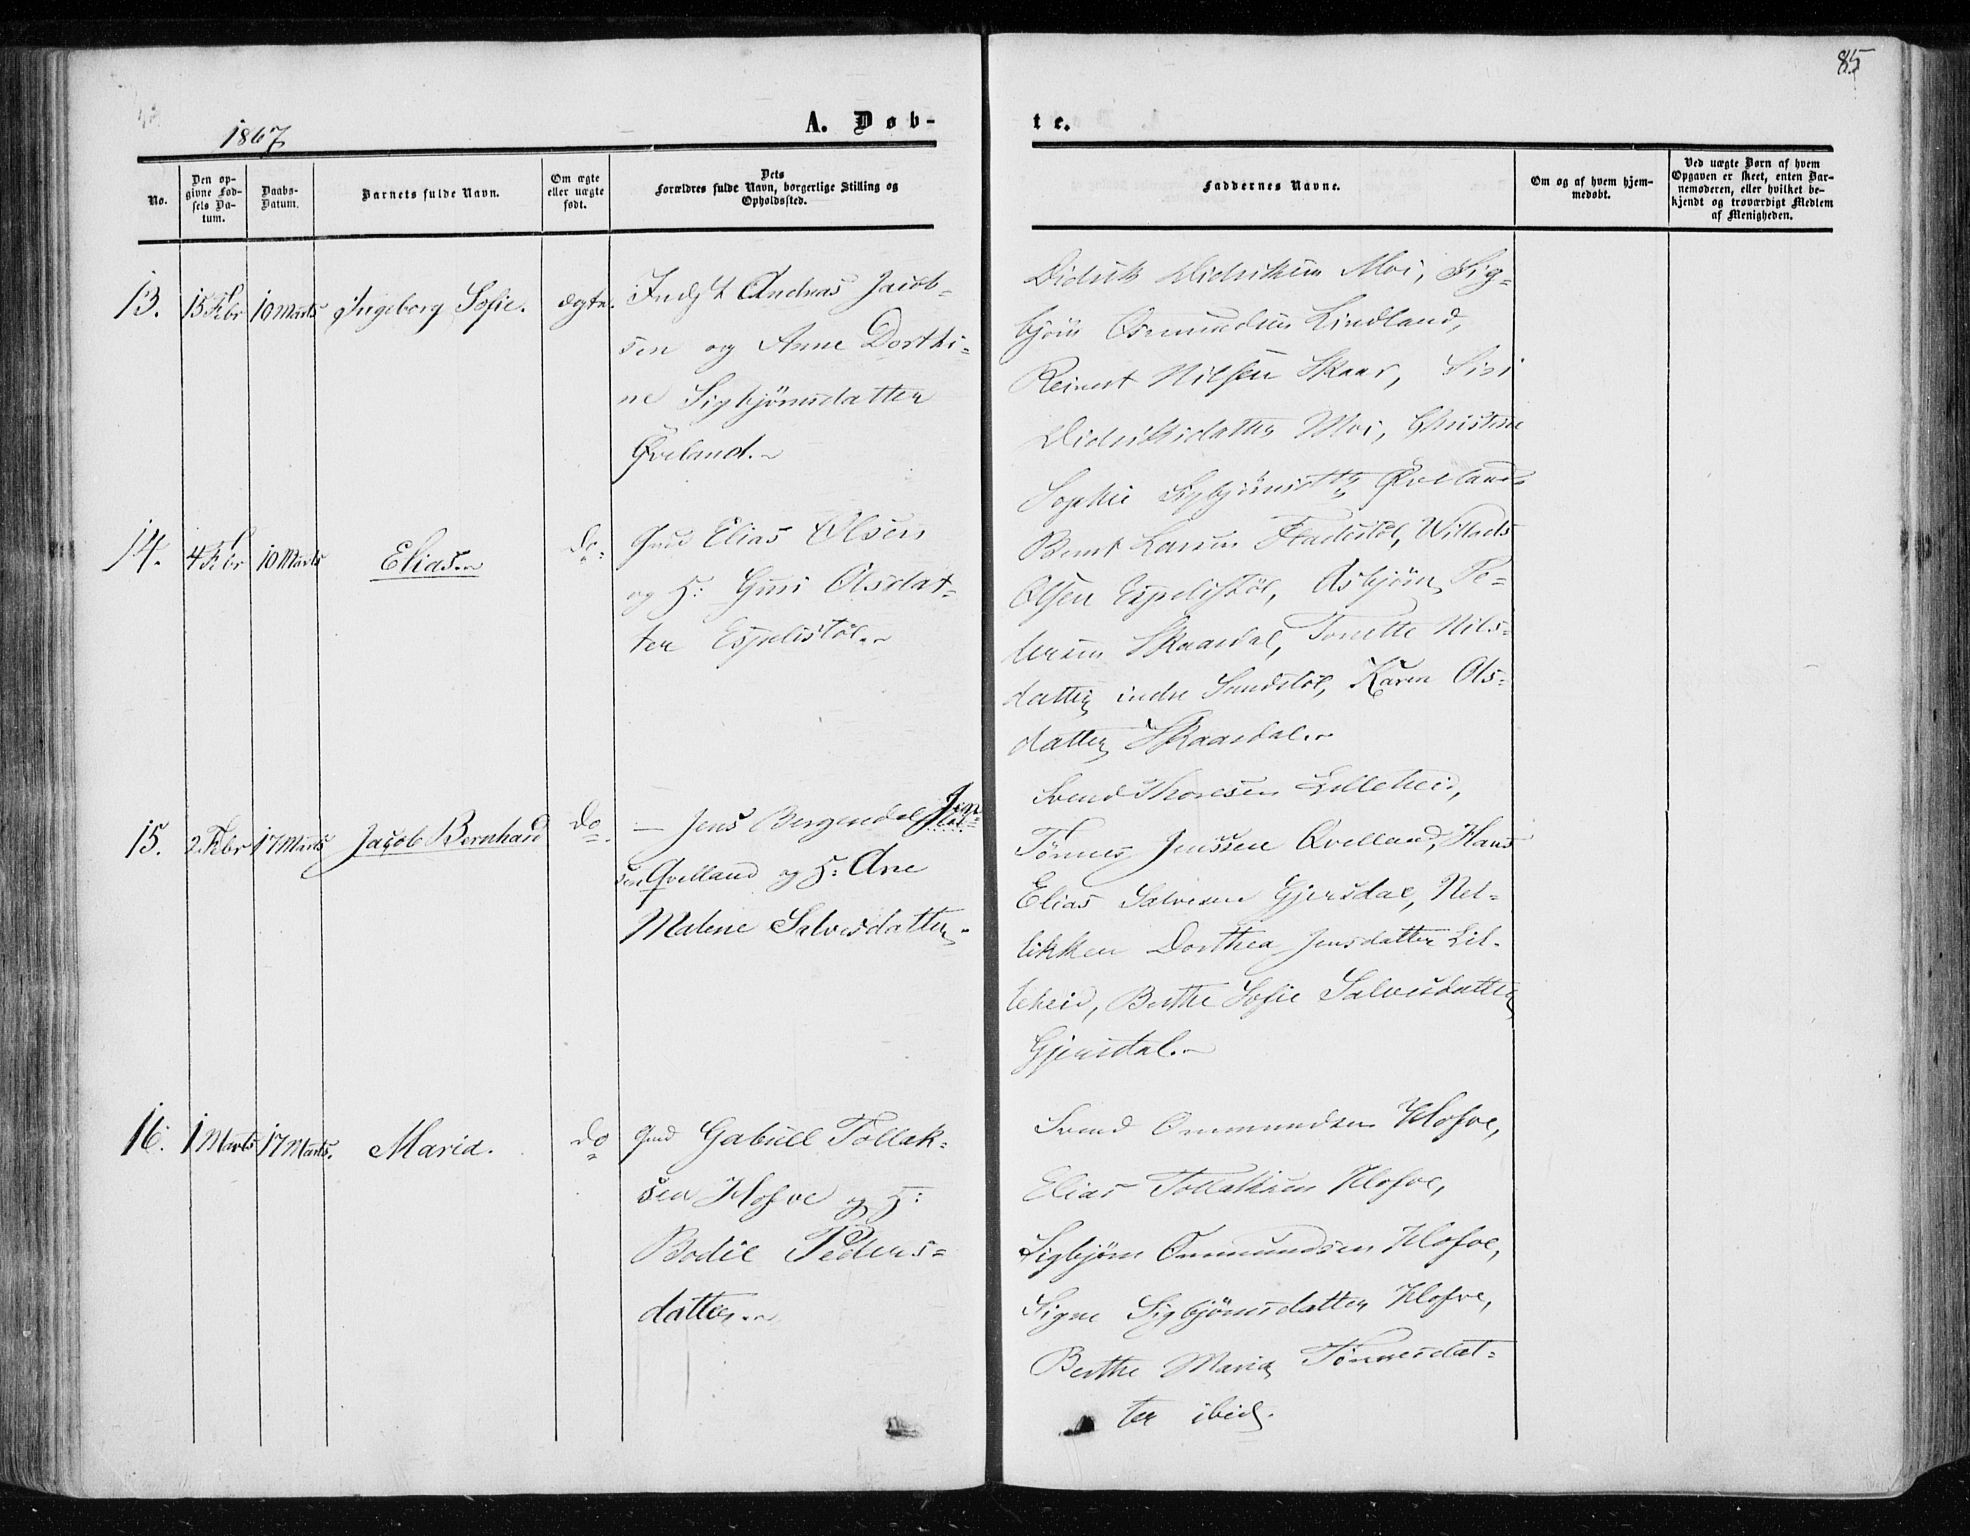 85
1867
A. Døb-
te.
No.
Den op-
givne Fød-
sels Da-
tum.
Daabs-
Datum.
Barnets fulde Navn.
Om ægte
eller uægte
født.
Dets
Forældres fulde Navn, borgerlige Stilling og
Opholdssted.
Faddernes Navne.
Om og af hvem hjem-
medøbt.
Ved uægte Børn af hvem
Opgaven er skeet, enten Bar-
nemoderen, eller hvilket be-
kjendt og troværdigt Medlem
af Menigheden.
13. 15 Febr 10 Marts Ingeborg Sofie. ægte.
Andreas Jacob-
sen og Anne Dorthi-
ne Sigbjørnsdatter
Øveland.
Didrik Didriksen Moi, Sig-
bjørn Osmundsen Lindland,
Reinert Nilsen Skaar, Siri
Didriksdatter Moi, Christine
Sophie Sigbjørnsdtr Øveland
14. 4 Febr 10 Marts Elias. do.
Gmd Elias Olsen
og H: Guri Olsdat-
ter Espelistøl.
Bernt Larsen Stadestøl, Willads
Olsen Espelistøl, Asbjørn Pe-
dersen Skaardal, Tonette Nils-
datter indre Sandstøl, Karen Ols-
datter Skaardal.
15. 2 Febr 17 Marts Jacob Bernhard do.
— Jens Bergendal
sen Qvelland og H: Ane
Malene Salvesdatter.
Svend Thoresen Lilleheii,
Tønnes Jenssen Qvelland, Hans
Elias Salvesen Gjersdal, Nel-
likken Dorthea Jensdatter Lil-
leheii, Berthe Sofie Salvesdatter
Gjersdal.
16. 1 Marts 17 Marts. Maria. do
Gmd Gabriel Tollak-
sen Klofve og H:
Bodil Peders-
datter.
Svend Ommundsen Klofve,
Elias Tollaksen Klofve,
Sigbjørn Ommundsen Klofve,
Signe Sigbjørnsdatter Klofve,
Berthe Maria Tønnesdat-
ter ibid.